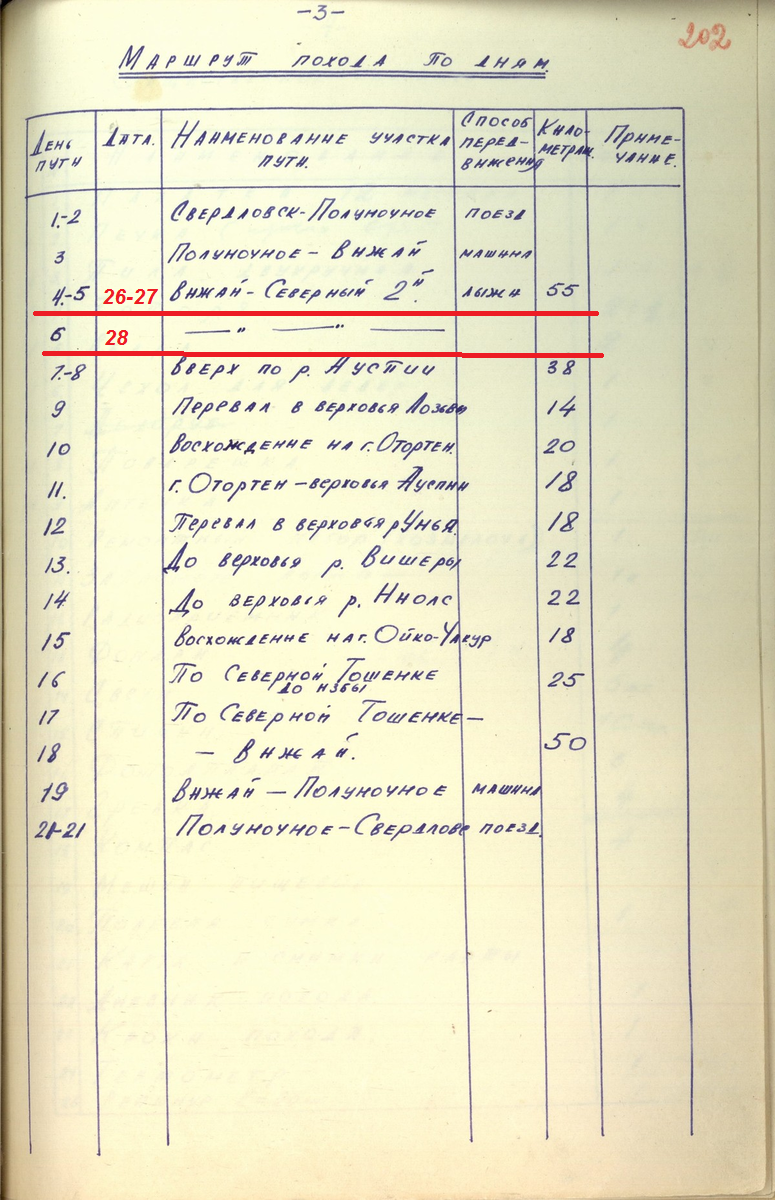 -3-
202
Маршрут похода по дням
День пути Дата. Наименование участка пути. Способ передвижения Километраж. Примечание.
1.-2 Свердловск-Полуночное поезд
3 Полуночное - Вижай машина
4.-5 26-27 Вижай-Северный 2й. лыжи 55
6 28 — " — " —
7.-8 Вверх по р. Ауспии 38
9 Перевал в верховья Лозьвы 14
10 Восхождение на г. Отортен. 20
11. г. Отортен - верховья Ауспии 18
12 Перевал в верховья р Унья 18
13. До верховья р. Вишеры 22
14 До верховья р. Ниолс 22
15 Восхождение на г. Ойко-Чакур 18
16 По Северной Тошемке до избы 25
17 По Северной Тошемке -
18 - Вижай. 50
19 Вижай - Полуночное машина
21-21 Полуночное-Свердловс поезд.